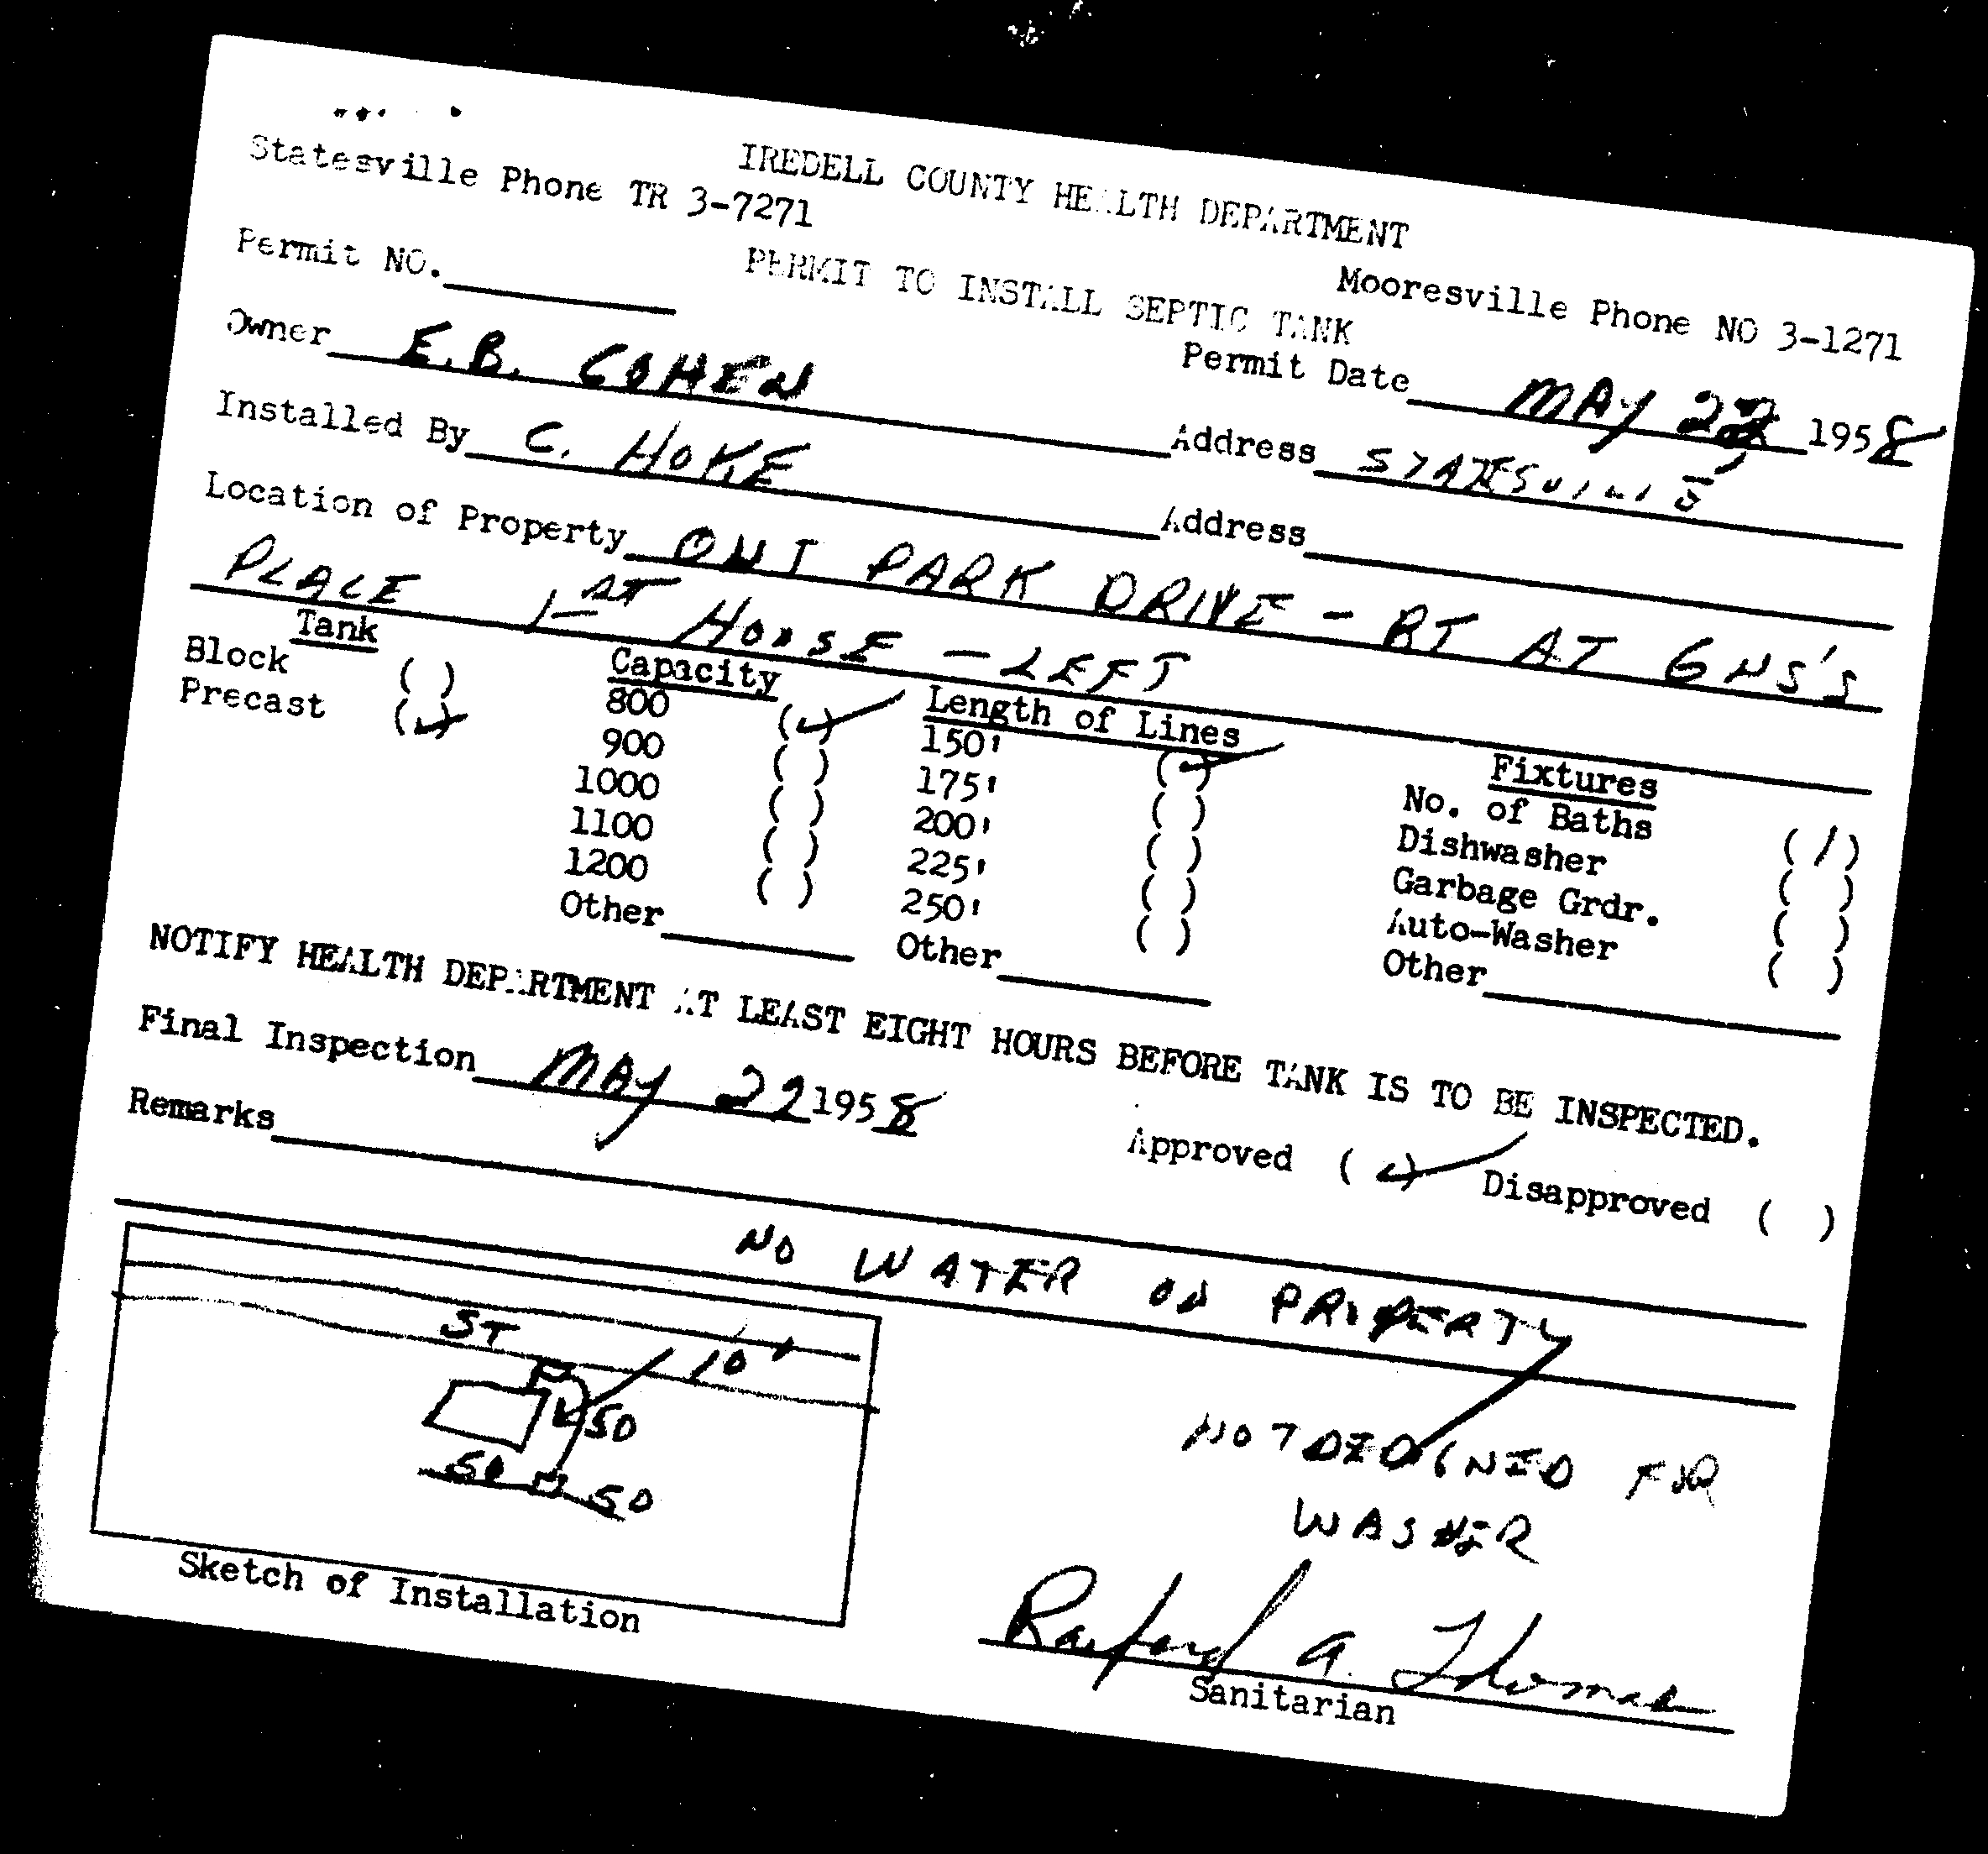 IREDELL COUNTY HEALTH DEPARTMENT
Statesville Phone TR 3-7271
Mooresville Phone NO 3-1271
PERMIT TO INSTALL SEPTIC TANK
Permit NO.
Permit Date MAY 22 1958
Owner E.B. COHEN Address STATESVILLE
Installed By C. HOKE Address
Location of Property OUT PARK DRIVE - RT AT
PLACE 1ST HOUSE - LEFT
Tank Capacity Length of Lines Fixtures
Block ( ) 800 (✓) 150' (✓) No. of Baths (1)
Precast (✓) 900 ( ) 175' ( ) Dishwasher ( )
1000 ( ) 200' ( ) Garbage Grdr. ( )
1100 ( ) 225' ( ) Auto-Washer ( )
1200 ( ) 250' ( ) Other
Other Other
NOTIFY HEALTH DEPARTMENT AT LEAST EIGHT HOURS BEFORE TANK IS TO BE INSPECTED.
Final Inspection MAY 22 1958 Approved (✓) Disapproved ( )
Remarks
NO WATER ON PROPERTY
ST
10'
50
50 50
NOT FOR
WASHER
Sketch of Installation
Raiford A. Thomas
Sanitarian